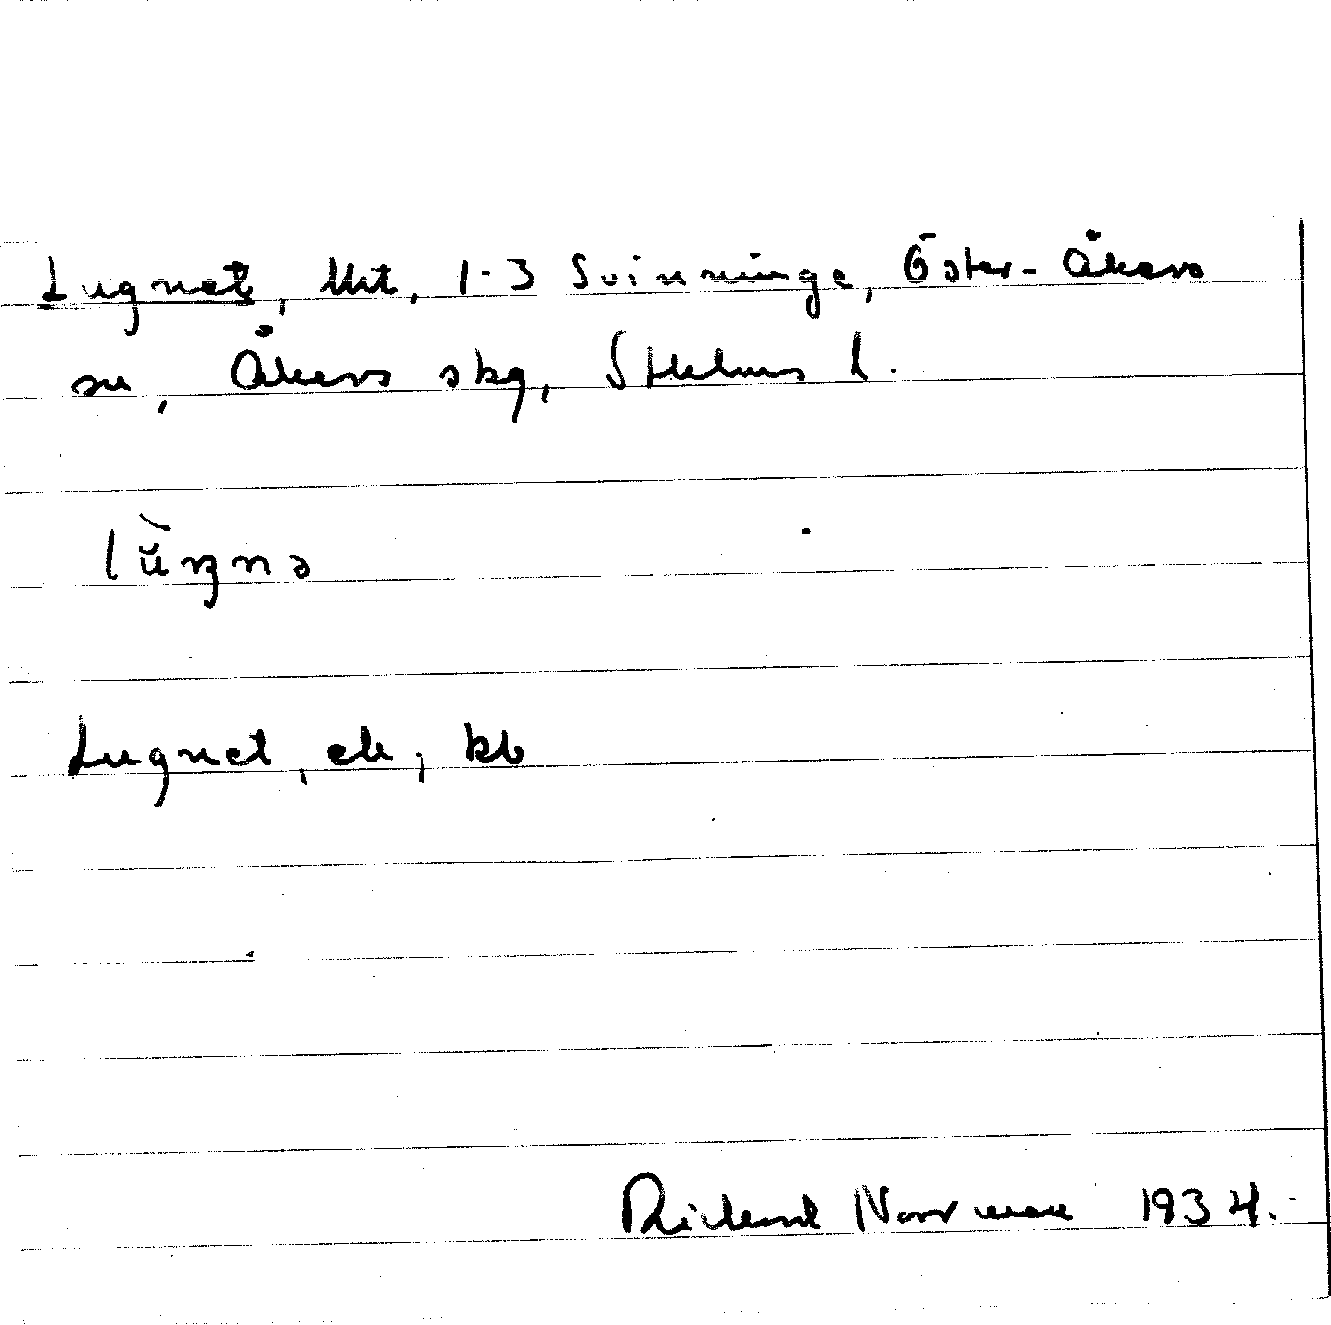 Lugnet, lht, 1-3 Svinninge, Öster-Åkers
sn, Åkers skg, Sthlms l.
lŭ̀ŋnə
Lugnet, ek, kb
Rickard Norrman 1934.